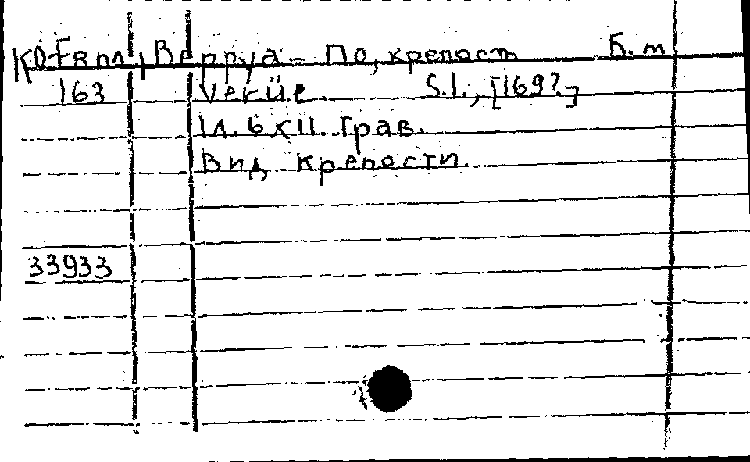 К0-Евпл, Верруа - По, крепост Б.м
163 Verüe. S.l., [169?]
1л. 6x11. Грав.
Вид крепости.
33933